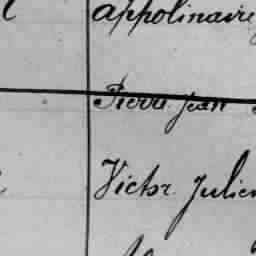 appolinaire
Pierre Jean
Victor Julien